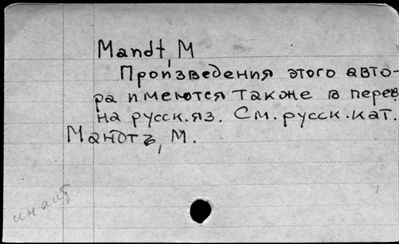 Mandt, M
Произведения этого авто-
ра имеются также в перев
на русск.яз. См.русск.кат.
Мандтъ, М.